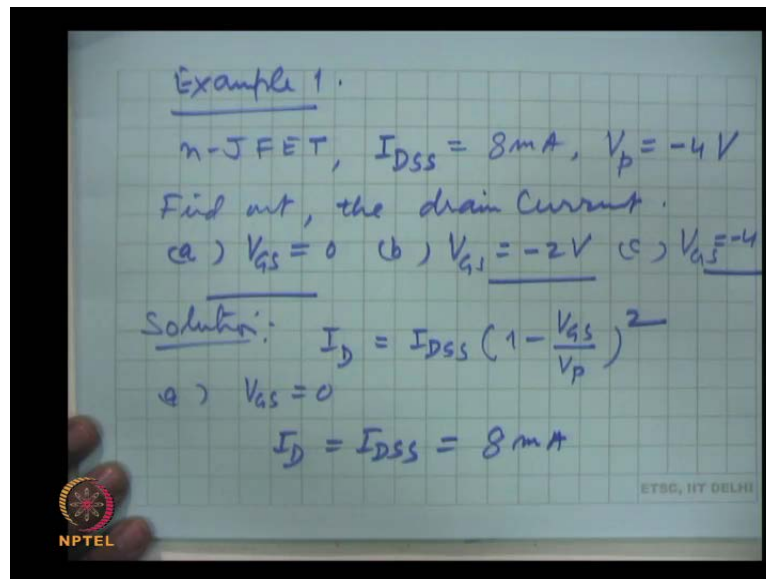 Example 1.
n-JFET, I_DSS = 8mA, V_p = -4V
Find out, the drain Current.
(a) V_GS = 0 (b) V_GS = -2V (c) V_GS = -4
Solution: I_D = I_DSS (1 - V_GS/V_p)^2
a) V_GS = 0
I_D = I_DSS = 8 mA
ETSC, IIT DELHI
NPTEL